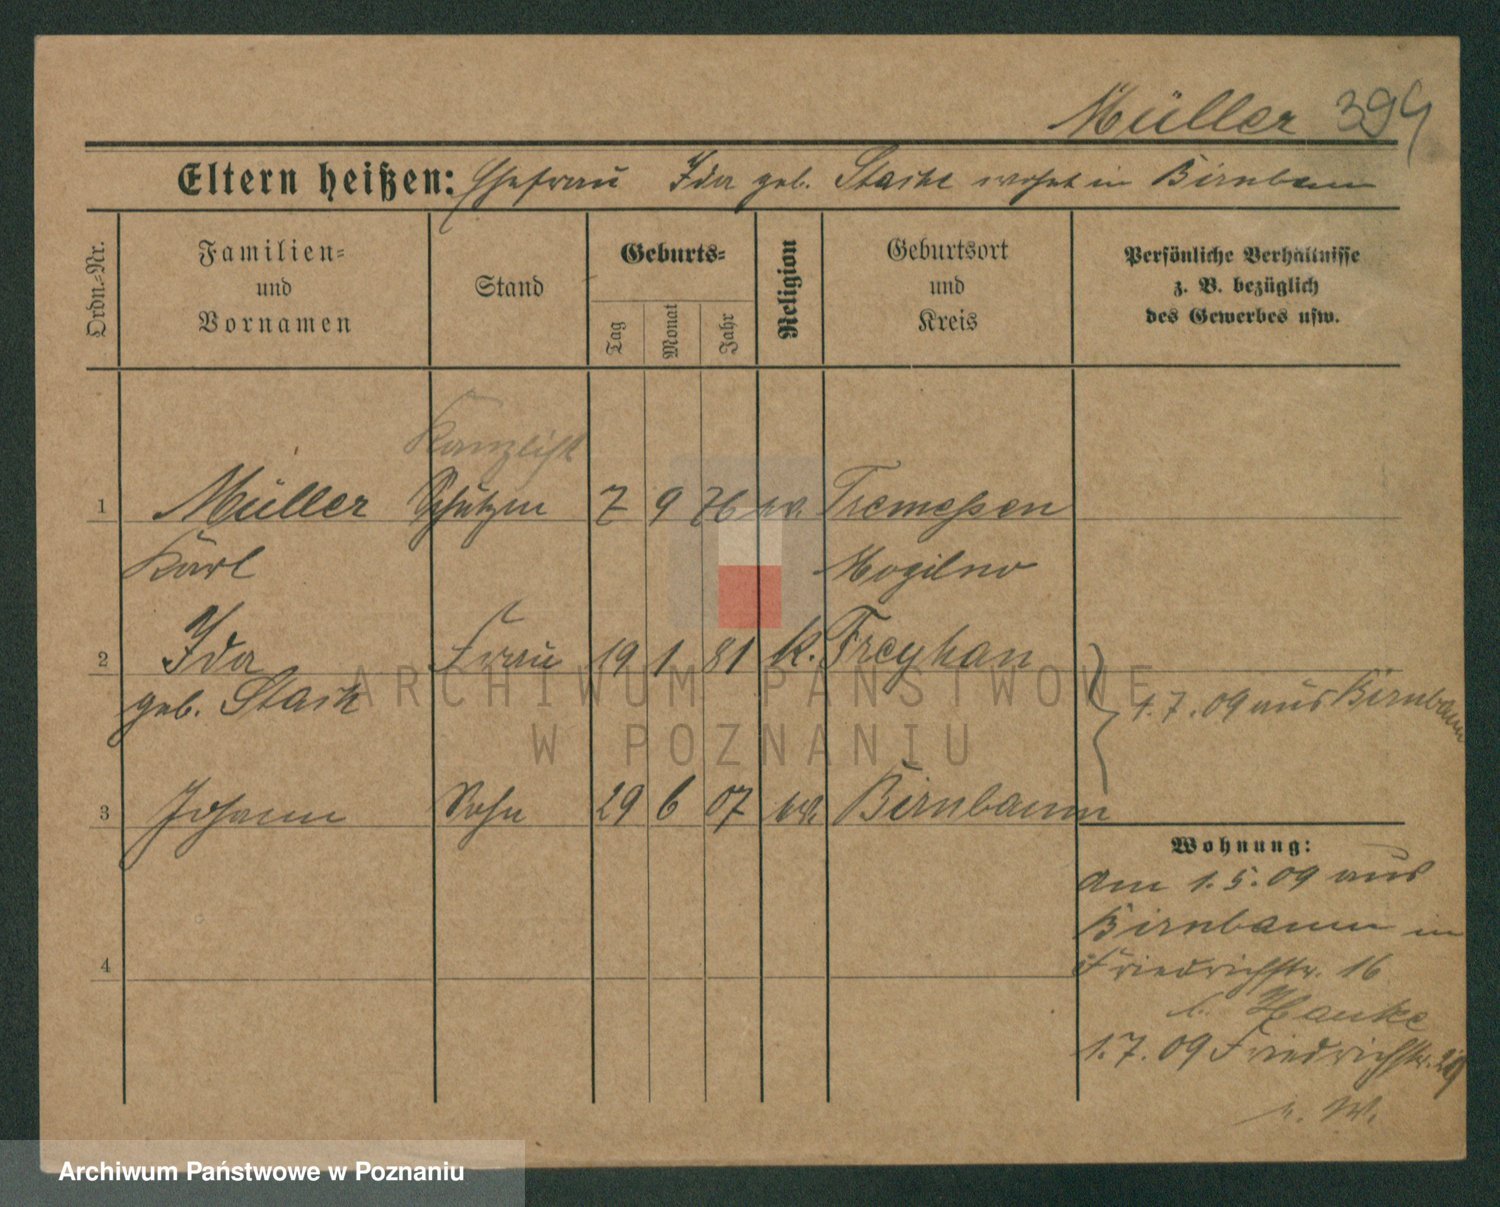 Müller 394
Eltern heißen: Ehefrau Ida geb. Stache wohnt in Birnbaum
Ordn.-Nr.
Familien- und Vornamen
Stand
Geburts-
Tag
Monat
Jahr
Religion
Geburtsort und Kreis
Persönliche Verhältnisse
z. B. bezüglich
des Gewerbes usw.
Kanzlist
1 Müller 7 9 76 ev. Tremessen
Karl Mogilno
2 Ida Frau 19 1 81 k. Freyhan
geb. Stach
1.7.09 aus Birnbaum
3 Johann Sohn 29 6 07 ev. Birnbaum
Wohnung:
am 1.5.09 aus
Birnbaum in
Friedrichstr. 16
b. Hanke
4
1.7.09 Friedrichstr.
ARCHIWUM PAŃSTWOWE
W POZNANIU
Archiwum Państwowe w Poznaniu